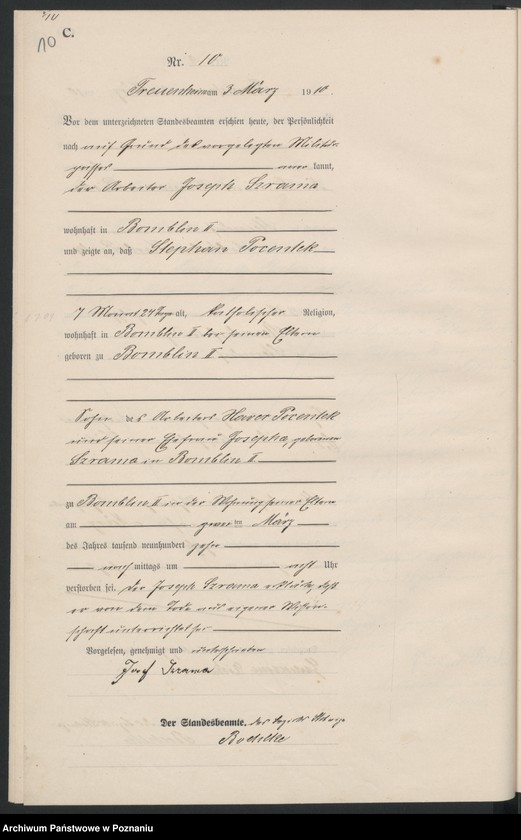 10
10 C.
Nr. 10
am 3. März 1910.
Vor dem unterzeichneten Standesbeamten erschien heute, der Persönlichkeit
nach auf Grund des vorgelegten Militär-
passes kannt,
der Arbeiter Joseph Szrama
wohnhaft in Bomblin II
und zeigte an, daß Stephan Pocentek
7 Monat 24 Tage alt, katholischer Religion,
wohnhaft in Bomblin II bei seinen Eltern
geboren zu Bomblin II
Sohn des Arbeiters Pocentek
und seiner Ehefrau Josepha, geborenen
Szrama in Bomblin II
zu Bomblin II in der Wohnung seiner Eltern
am zwei ten März
des Jahres tausend neunhundert zehn
nach mittags um acht Uhr
verstorben sei. Der Joseph Szrama erklärte, daß
er von dem Tode aus eigener Wissen-
schaft unterrichtet sei
Vorgelesen, genehmigt und unterschrieben
Józef Szrama
Der Standesbeamte.
Archiwum Państwowe w Poznaniu